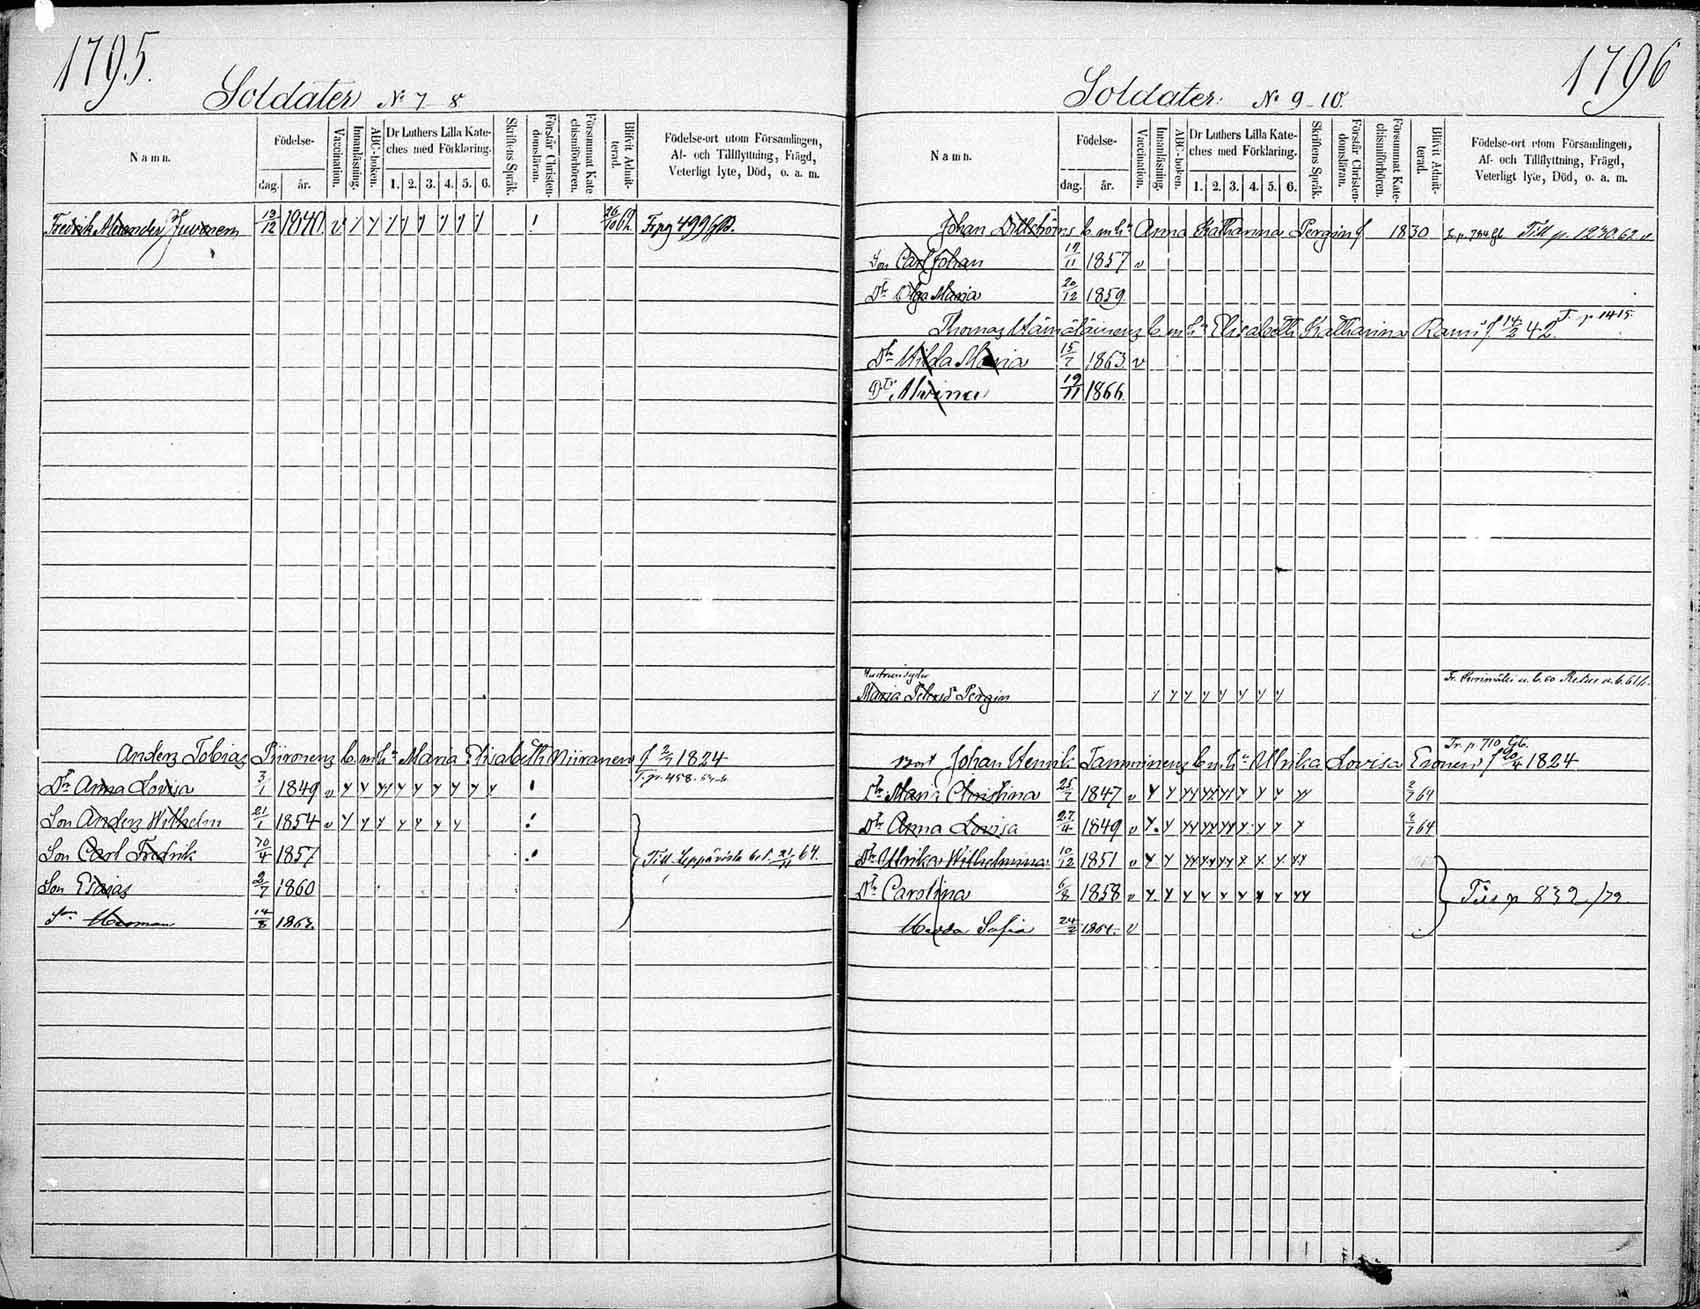 1795.
Soldater No 7 8
Namn.
Födelse-
dag.
år.
Vaccination.
Innanläsning.
ABC-boken.
Dr Luthers Lilla Kate-
ches med Förklaring.
1. 2. 3. 4. 5. 6.
Skriftens Språk.
Förstår Christen-
domsläran.
Försummat Kate
chismiförhören.
Blifvit Admit-
terad.
Födelse-ort utom Församlingen,
Af- och Tillflyttning, Frägd,
Veterligt lyte, Död, o. a. m.
Fredrik Alexander Juvonen 12/12 1840 v Fr pg 499 GB.
Anders Tobias Piironens E. m. h:a Maria Elisabeth Niiranen f 2/7 1824
Dr Anna Lovisa 3/1 1849 v
Son Anders Wilhelm 21/1 1854 v
Son Carl Fredrik 1857
Till Leppävirta 64.
Son Esaias 2/7 1860
Herman 14/8
1796
Soldater: No 9-10.
Namn.
Födelse-
dag.
år.
Vaccination.
Innanläsning.
ABC-boken.
Dr Luthers Lilla Kate-
ches med Förklaring.
1. 2. 3. 4. 5. 6.
Skriftens Språk.
Förstår Christen-
domsläran.
Försummat Kate-
chismiförhören.
Blifvit Admit-
terad.
Födelse-ort utom Församlingen,
Af- och Tillflyttning, Frägd,
Veterligt lyte, Död, o. a. m.
Johan E. m. h:a Anna Katharina Pergin f 1830 Till p. 1230.62
Son Carl Johan 19/11 1857 v
Dr Olga Maria 20/12 1859
T. p 1415
Thomas Hämäläinens E. m. h:a Elisabeth Katharina f 14/2 42.
Dr Hilda Maria 15/7 1863 v
Dr Alvina 19/11 1866
Maria Pergin
Tr. p 710 Gb.
Johan Henrik Tamminens E. m. h:a Ulrika Lovisa Eronen f 1824
Dr Maria Christina 25/7 1847 v 64
Dr Anna Lovisa 27/4 1849 v 64
Dr Ulrika Wilhelmina 10/12 1851 v
Dr Carolina 6/8 1858 v
Till p 832/72
Sofia 24/2 v